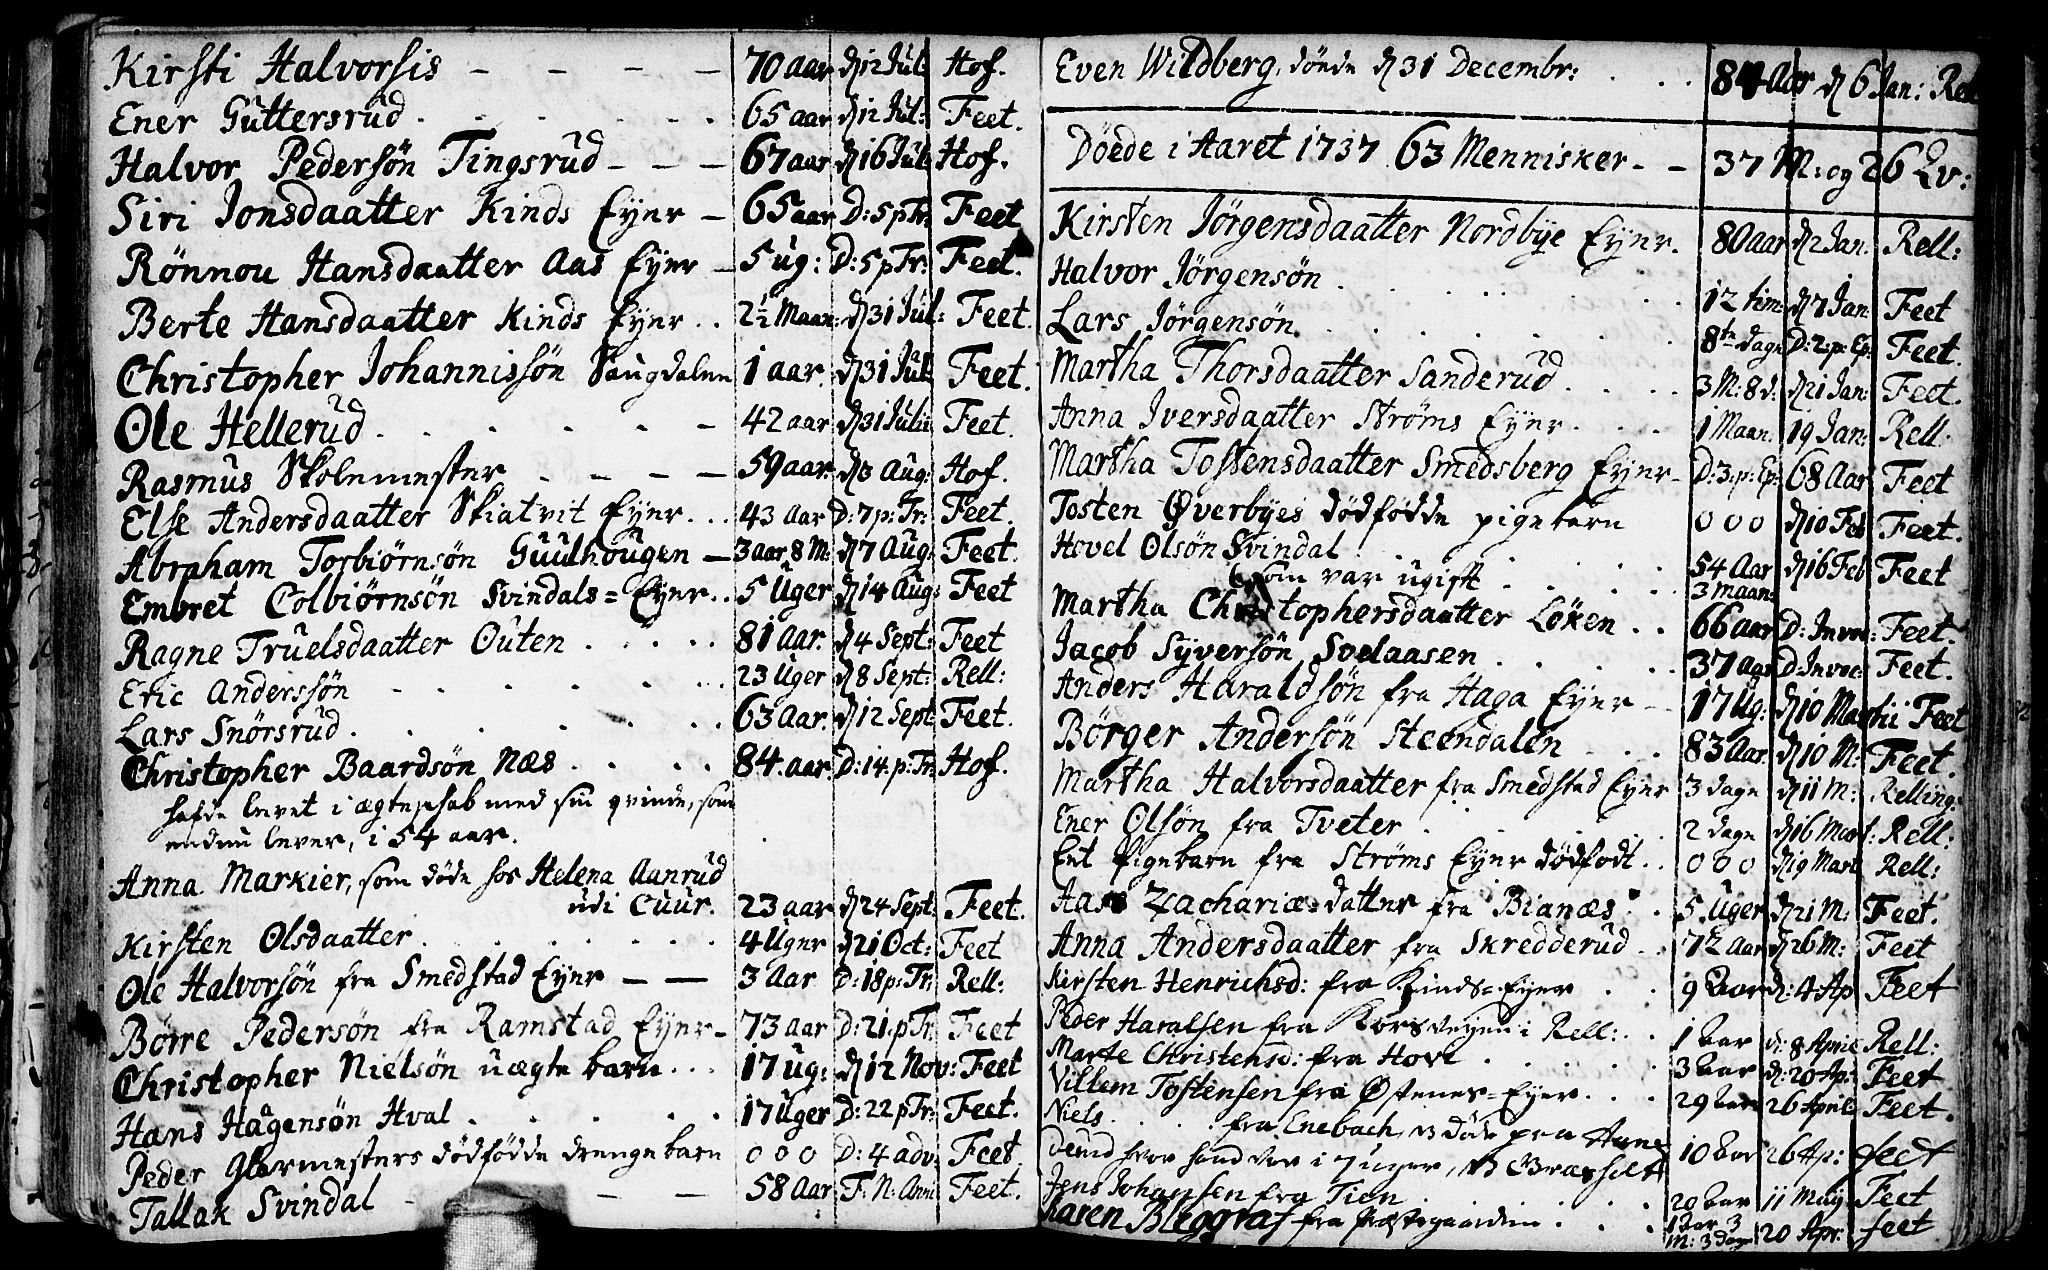 Kirsti Halvorsis - - - - 70 aar d 12 Jul: Hof.
Ener Guttersrud . . . . . . 65 aar d 12 Jul: Feet.
Halvor Pedersøn Tingsrud - - - 67 aar d 16 Jul: Hof.
Siri Jonsdaatter Kinds Eyer - 65 aar D: 5 p Tr: Feet
Rønnou Hansdaatter Aas Eyer - 5 ug: D: 5 p Tr: Feet.
Berte Hansdaatter Kinds Eyer . . 2½ Maan: d 31 Jul: Feet.
Christopher Johannissøn Haugdalen 1 aar. d 31 Jul: Feet.
Ole Hellerud . . . . - - 42 aar d 31 Julii Feet.
Rasmus Skolemester - - - - 59 aar. d 3 Aug: Hof.
Else Andersdaatter Skiatvit Eyer . . . 43 Aar D: 7 p: Tr: Feet.
Abraham Torbiørnsøn Guulhougen - 3 aar 8 M: d 7 Aug: Feet.
Embret Colbiørnsøn Svindals = Eyer . . 5 Uger d 14 Aug: Feet
Ragne Truelsdaatter Outen . . . . . 81 Aar. d 4 Sept: Feet
Eric Anderssøn - . . . . . 23 Uger d 8 Sept: Rell:
Lars Snørsrud . . . . . . 63 Aar. d 12 Sept: Feet.
Christopher Baardsøn Næs . . . . 84. aar D: 14. p: Tr: Hof.
hafde levet i ægteschab med sin qvinde, som
endnu lever, i 54 aar.
Anna Markier, som døde hos Helena Aanrud
udi Cuur. 23 aar d 24 Sept: Feet.
Kirsten Olsdaatter . . . . . . 4 Uger d 21 Oct: Feet
Ole Halvorsøn fra Smedstad Eyer - - 3 Aar D: 18 p: Tr: Rell:
Børre Pedersøn fra Ramstad Eyer - 73 aar D: 21. p Tr: Feet
Christopher Nielsøn uægte barn . . . 17 ug: d 12 Nov: Feet
Hans Hagensøn Hval . . . . . 17 Uger D: 22 p Tr: Feet.
Peder Glarmesters dødfødde drengebarn 0 0 0 D: 4 adv: Feet
Tallak Svindal - - - 58 Aar F. N: Anni Feet.
Even Wildberg, døede d 31 Decembr: . . . 84 Aar d 6 Jan: Rell
Døede i Aaret 1737 63 Mennisker - - 37 M: og 26 Qv:
Kirsten Jørgensdaatter Nordbye Eyer. 80 aar d 2 Jan: Rell:
Halvor Jørgensøn . . . . . . 12 tim: d 7 Jan: Feet
Lars Jørgensøn . . . . . 8te dage D: 2: p: Ep: Feet.
Martha Thorsdaatter Sanderud . . . . 3 M: 8 d: d 21 Jan: Feet.
Anna Iversdaatter Strøms Eyer . . . 1 Maan. 19 Jan: Rell:
Martha Tostensdaatter Smedsberg Eyer - D: 3. p: Ep: 68 Aar Feet
Tosten Øverbyes dødfødde pigebarn 0 0 0 d 10 Feb Feet.
Hovel Olsøn Svindal . . . . . 54 Aar d 16 Feb Feet
som var ugift . . . . 3 maan:
Martha Christophersdaatter Løken . . 66 aar D: Invoc: Feet.
Jacob Syversøn Svelaasen . . . . . 37 Aar D: Invoc: Feet.
Anders Haraldsøn fra Haga Eyer - - 17 Ug: d 10 Martii Feet
Børger Andersøn Steendalen . . . 83 Aar. d 10 M: Feet.
Martha Halvorsdaatter fra Smedstad Eyer 3 dage d 11 M: Relling:
Ener Olsøn fra Tveter . . . . . 2 dage d 16 Mart: Rell:
Eet Pigebarn fra Strøms Eyer dødfødt . . 0 0 0 d 19 Mart Rell:
Aase Zachariæ=datter fra Bianæs . . 5 Uger d 21 M: Feet.
Anna Andersdaatter fra Skredderud . . 7½ Aar d 26 M: Feet
Kirsten Henrichsd: fra Kinds = Eyer . . 9 Aar d: 4 Ap Feet
Peder Haralsen fra Korsveyen i Rell: . . 1 Aar d: 8 April Rell:
Marte Christensd: fra Hovt . . . . . 3 Aar d: 20 Ap: Feet
Villem Tostensen fra Østenes = Eyer . . . 29 Aar 26 April Feet.
Niels . . . . . fra Enebach, døde paa
hvor hand var i 7 uger, 10 Aar 26 Ap: feet
Jens Johansen fra Tien . . . . . 20 Aar 11 May Feet
Karen Bleggraf fra Præstegaarden . . . 1 Aar 3 M: 3 dage 20 Apr: feet